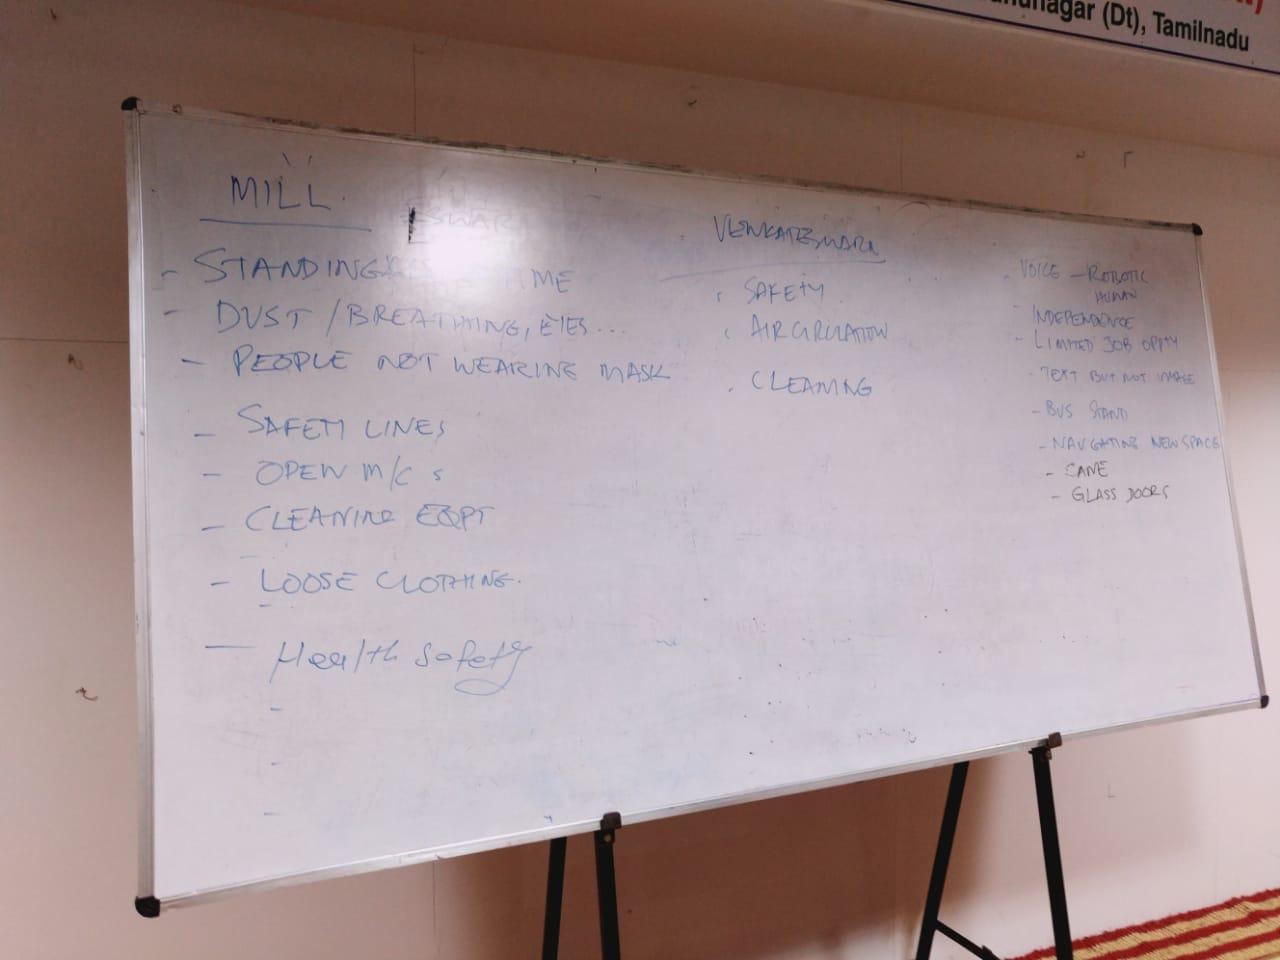 nagar (Dt), Tamilnadu
MILL
- STANDING TIME
- DUST / BREATHING, EYES ...
- PEOPLE NOT WEARING MASK
- SAFETY LINES
- OPEN M/C s
- CLEANING EQPT
- LOOSE CLOTHING.
- Health Safety
VENKATESWARA
. SAFETY
. AIR CIRCULATION
. CLEANING
- VOICE - ROBOTIC
HUMAN
- INDEPENDENCE
- LIMITED JOB OPPTY
- TEXT BUT NOT IMAGE
- BUS STAND
- NAVIGATING NEW SPACE
- CANE
- GLASS DOORS